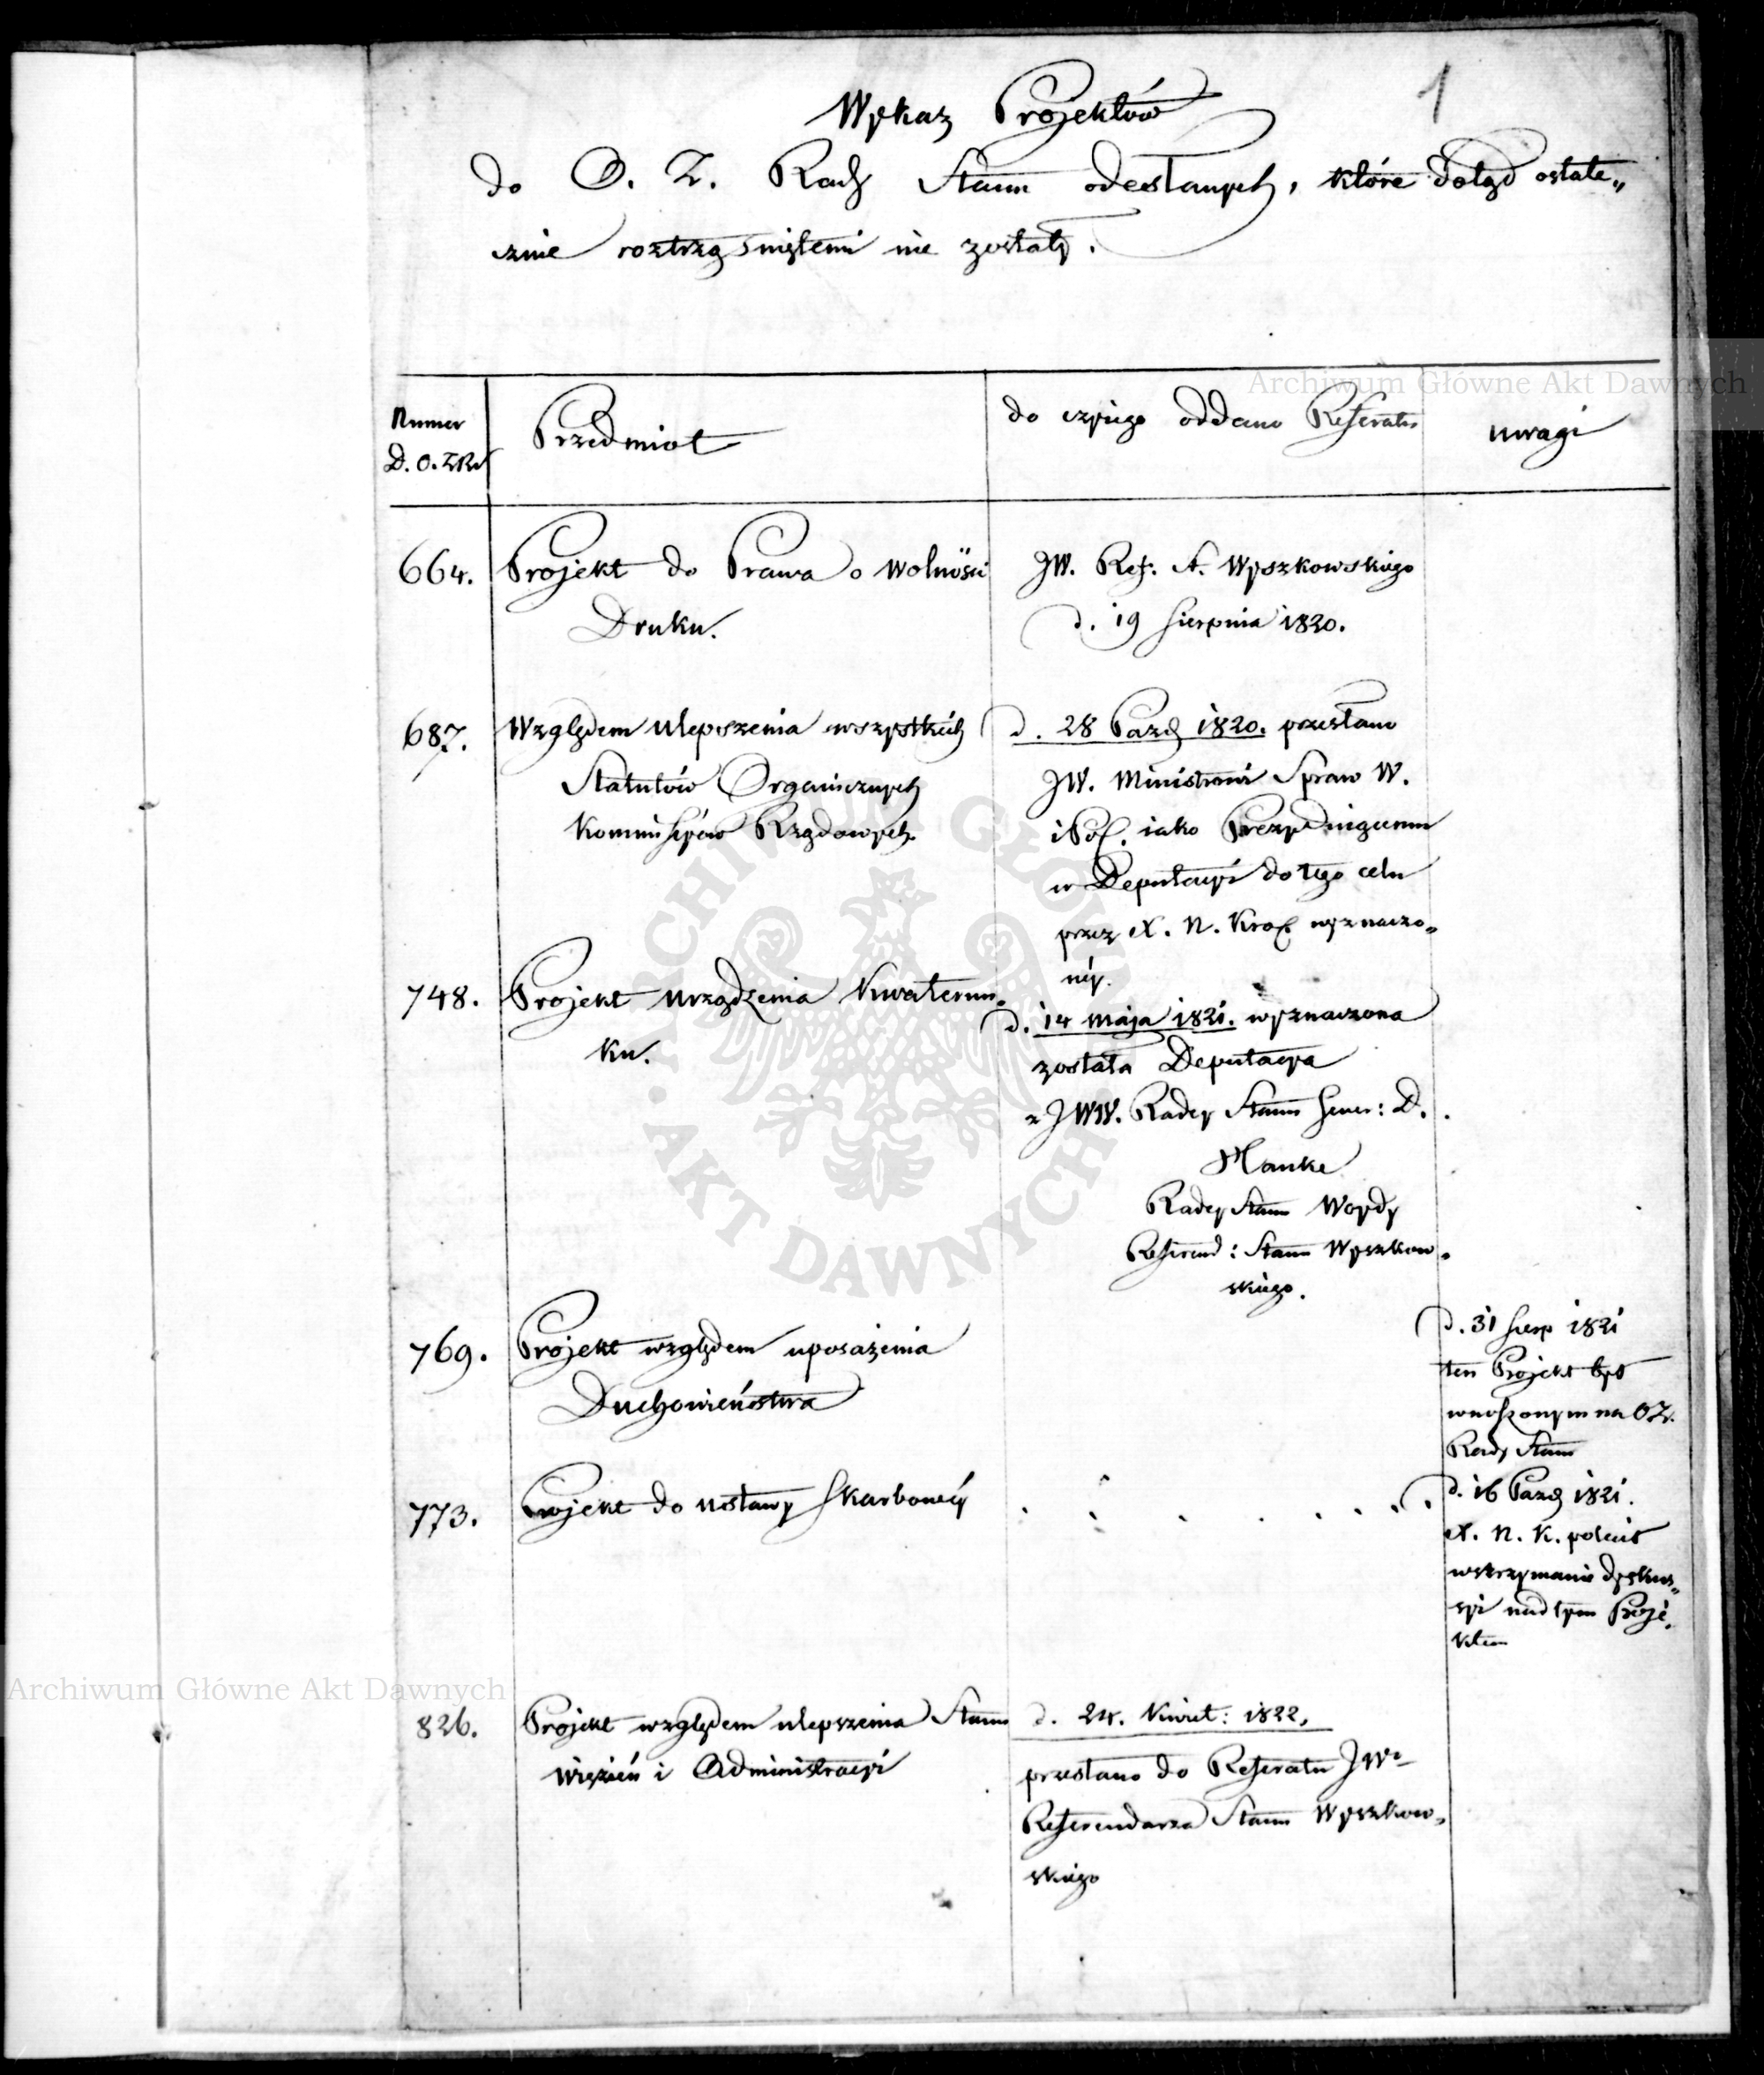 1
Wykaz Projektów
do O. Z. Rady Stanu odesłanych, które dotąd ostate„
cznie roztrząśniętemi nie zostały.
Archiwum Główne Akt Dawnych
Numer
D. O. Z R S
Przedmiot
do czyiego oddano Referatu
uwagi
664.
Projekt do Prawa o wolności
Druku.
JW. Ref. A. Wyszkowskiego
d. 19 Sierpnia 1820.
687.
Względem ulepszenia wszystkich
Statutów Organicznych
Kommissyów Rządowych
d. 28 Paźd 1820. przesłano
JW. Ministrowi Spraw W.
i Pol. iako Prezyduiącemu
w Deputacyi do tego celu
przez X. N. Krol wyznaczo„
néy.
748.
Projekt urządzenia Kwaterun„
ku.
d. 14 Maja 1821. wyznaczona
została Deputacya
z JWW. Radcy Stanu Gener: D.
Hauke
Radcy Stanu Woydy
Referend: Stanu Wyszkow„
skiego.
769.
Projekt względem uposażenia
Duchowieństwa
d. 31 Sierp 1821
ten Projekt był
wnoszonym na OZ.
Rady Stanu
773.
Projekt do ustawy Skarbowéy
d. 16 Paźd 1821.
X. N. K. polecił
wstrzymanie dyskus„
syi nad tym Proje„
ktem
826.
Projekt względem ulepszenia Stanu
więzień i Administracyi
d. 24. Kwiet: 1822,
przesłano do Referatu JWo
Referendarza Stanu Wyszkow„
skiego
Archiwum Główne Akt Dawnych
ARCHIWUM GŁÓWNE
AKT DAWNYCH